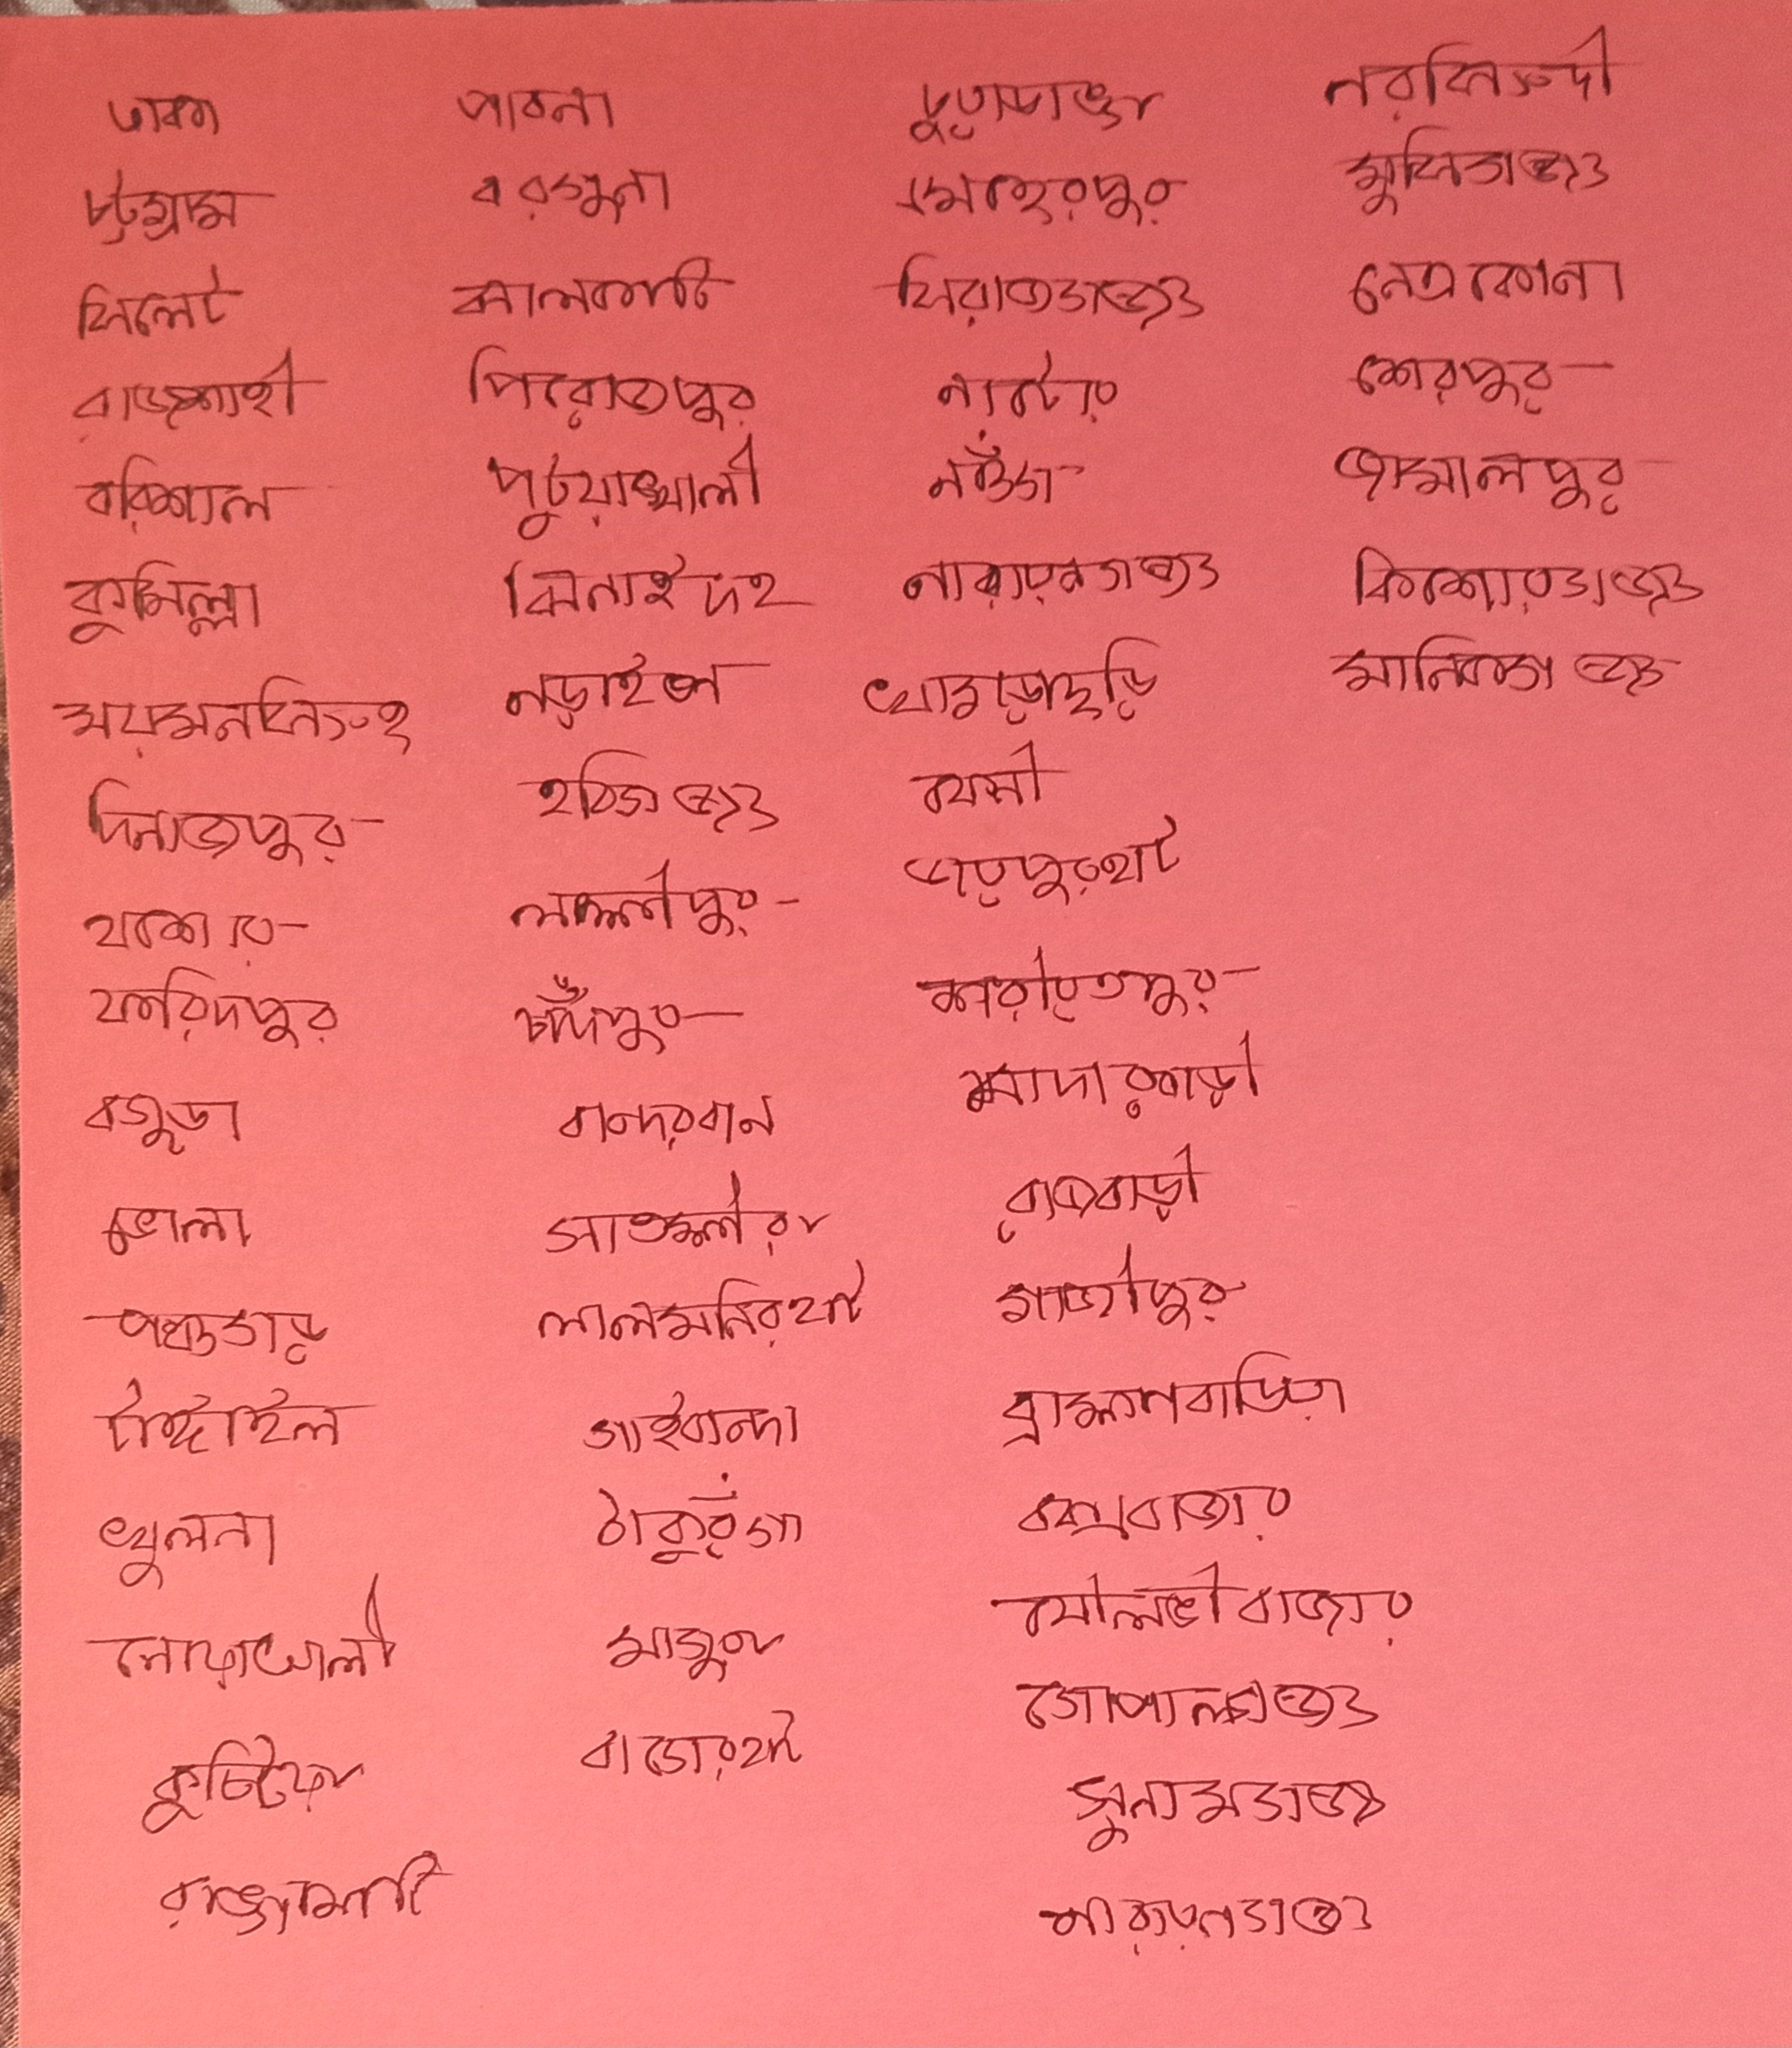 ঢাকা
চট্টগ্রাম
সিলেট
রাজশাহী
বরিশাল
কুমিল্লা
ময়মনসিংহ
দিনাজপুর
যশোর
ফরিদপুর
বগুড়া
ভোলা
পঞ্চগড়
টাঙ্গাইল
খুলনা
নোয়াখালী
কুষ্টিয়া
রাঙ্গামাটি
পাবনা
বরগুনা
ঝালকাঠি
পিরোজপুর
পটুয়াখালী
ঝিনাইদহ
নড়াইল
হবিগঞ্জ
লক্ষ্মীপুর
চাঁদপুর
বান্দরবান
সাতক্ষীরা
লালমনিরহাট
গাইবান্দা
ঠাকুরগাঁ
মাগুরা
বাগেরহাট
চুয়াডাঙ্গা
মেহেরপুর
সিরাজগঞ্জ
নাটোর
নওঁগা
নারায়নগঞ্জ
খাগড়াছড়ি
ফেনী
জয়পুরহাট
শরীয়তপুর
মাদারীপুর
রাজবাড়ী
গাজীপুর
ব্রাহ্মণবাড়িয়া
কক্সবাজার
মৌলভীবাজার
গোপালগঞ্জ
সুনামগঞ্জ
নারায়নগঞ্জ
নরসিংদী
মুন্সিগঞ্জ
নেত্রকোনা
শেরপুর
জামালপুর
কিশোরগঞ্জ
মানিকগঞ্জ